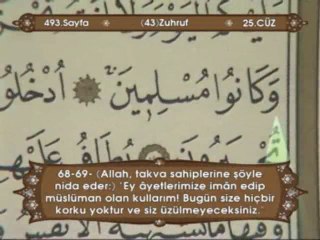 493.Sayfa (43)Zuhruf 25.CÜZ
وَكَانُوا مُسْلِمِينَ أُدْخُلُوا
يُطَافُ عَلَيْهِمْ
68-69- (Allah, takva sahiplerine şöyle
nida eder:) `Ey âyetlerimize imân edip
müslüman olan kullarım! Bugün size hiçbir
korku yoktur ve siz üzülmeyeceksiniz.`